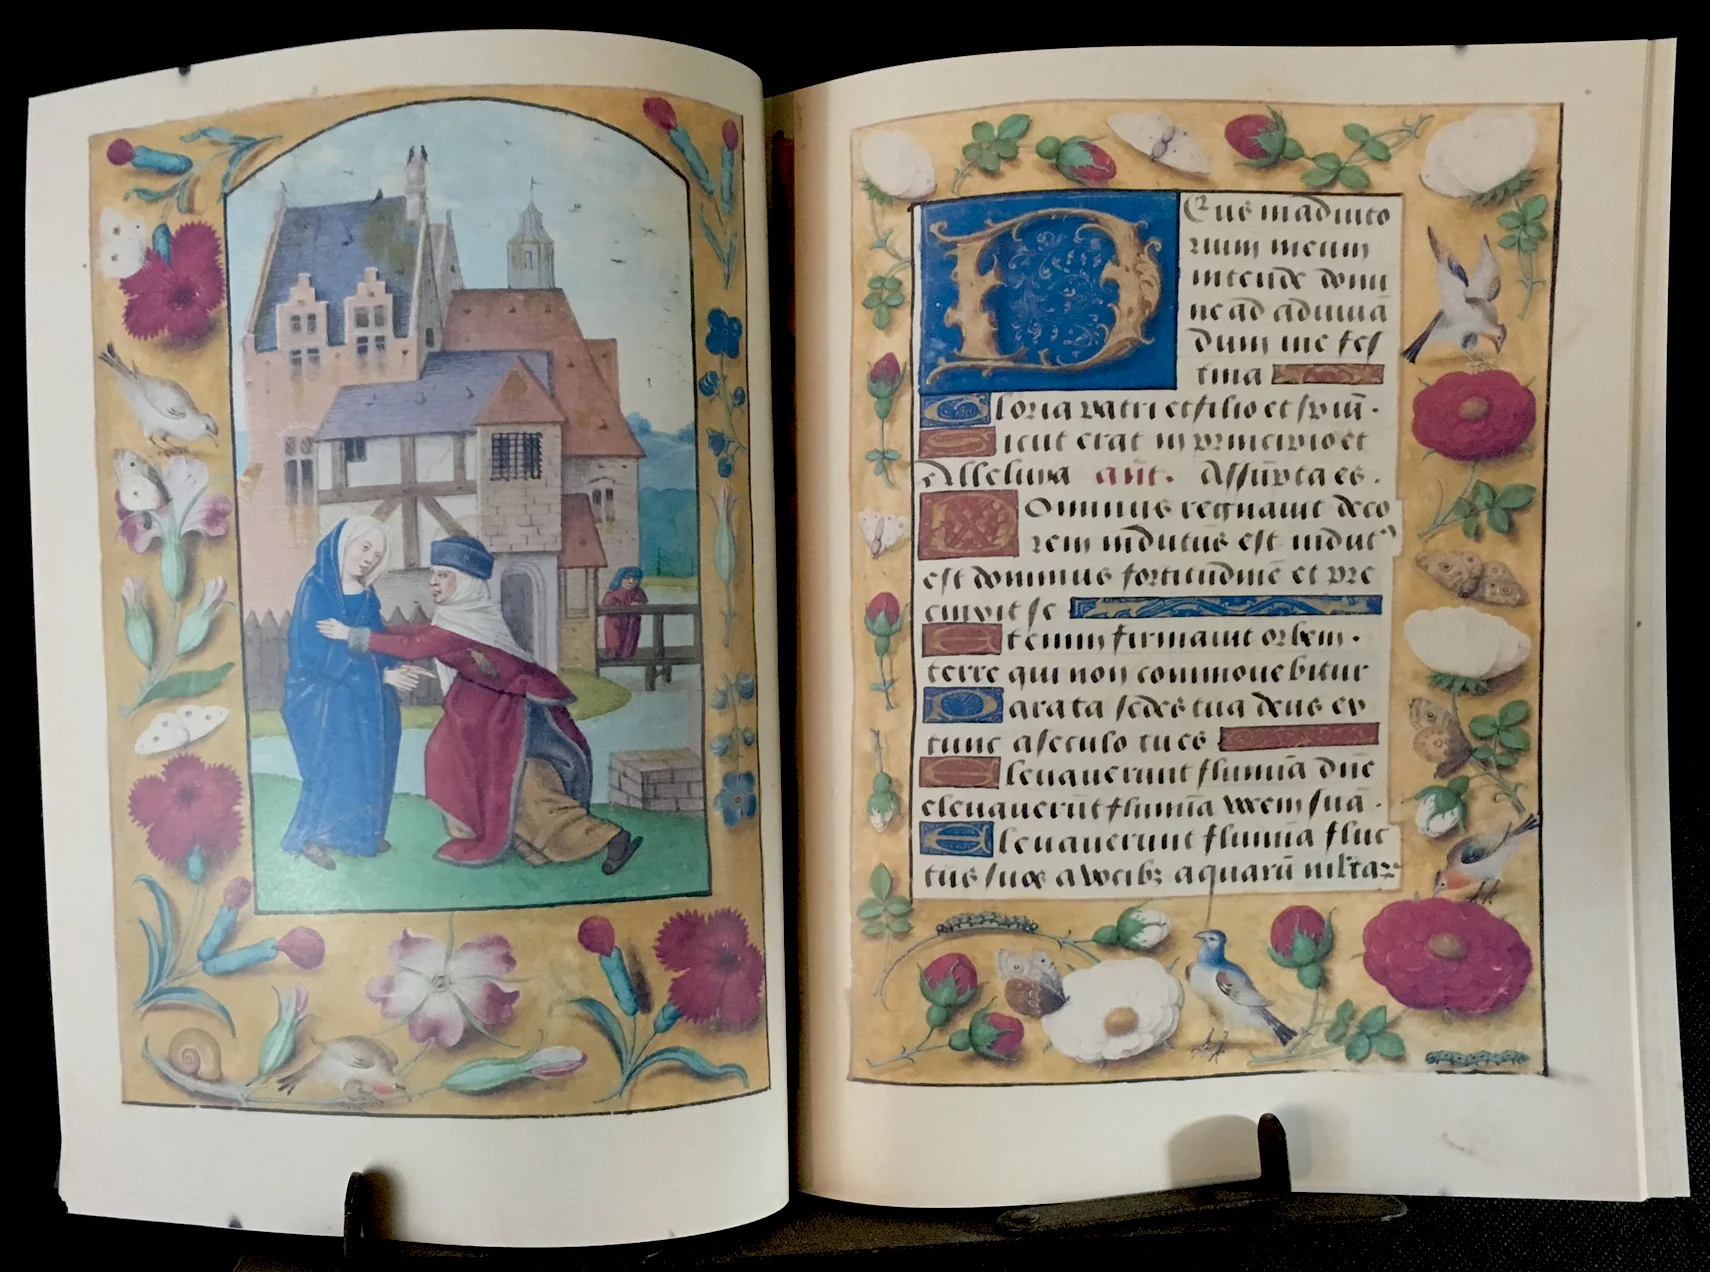 Deus in adiuto
rium meum
intende domi
ne ad adiuuā
dum me fes
tina
Gloria patri et filio et spiā.
Sicut erat in principio et
Alleluia ant. Assūpta es.
Dominus regnauit deco
rem indutus est indut⁹
est dominus fortitudinē et pre
cinxit se
Etenim firmauit orbem.
terre qui non commouebitur
Parata sedes tua deus ex
tunc a seculo tu es
Eleuauerunt flumīa dn̄e
eleuauerūt flumīa vocem suā.
Eleuauerunt flumīa fluc
tus suos a vocibꝫ aquarū multar